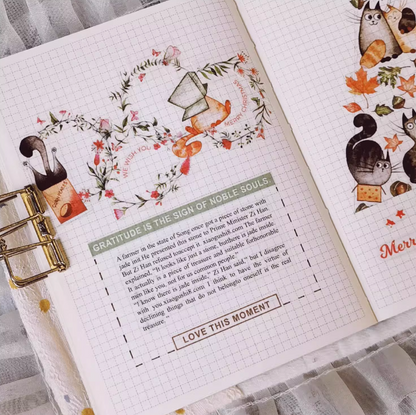 WE WISH YOU
GRATITUDE IS THE SIGN OF NOBLE SOULS.
A farmer in the state of Song once got a piece of stone with
jade ind.He presented this stone to Prime Minister Zi Han
But Zi Han refused toaccept it. xiangushik com The farmer
explained. "It looks like just a stone, butthere is jade inside.
It actually is a piece of treasure and suitable forhonorable
min like you, not for us common people."
"I know there is jade inside," Zi Han said," but I disagree
with you.xiangushik.com I think to have the virtue of
declining things that do not belongto oneself is the real
treasure."
LOVE THIS MOMENT
Merr